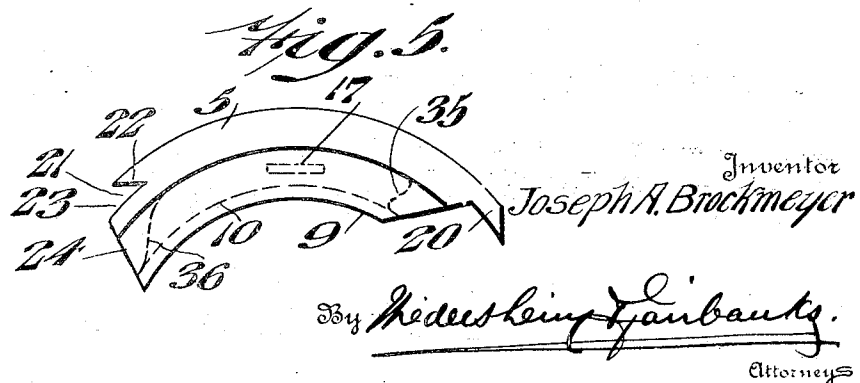 Fig. 5.
17
5
35
22
21
23
24
36
10
9
20
Inventor
Joseph A. Brockmeyer
By Wiedersheim & Fairbanks.
Attorneys